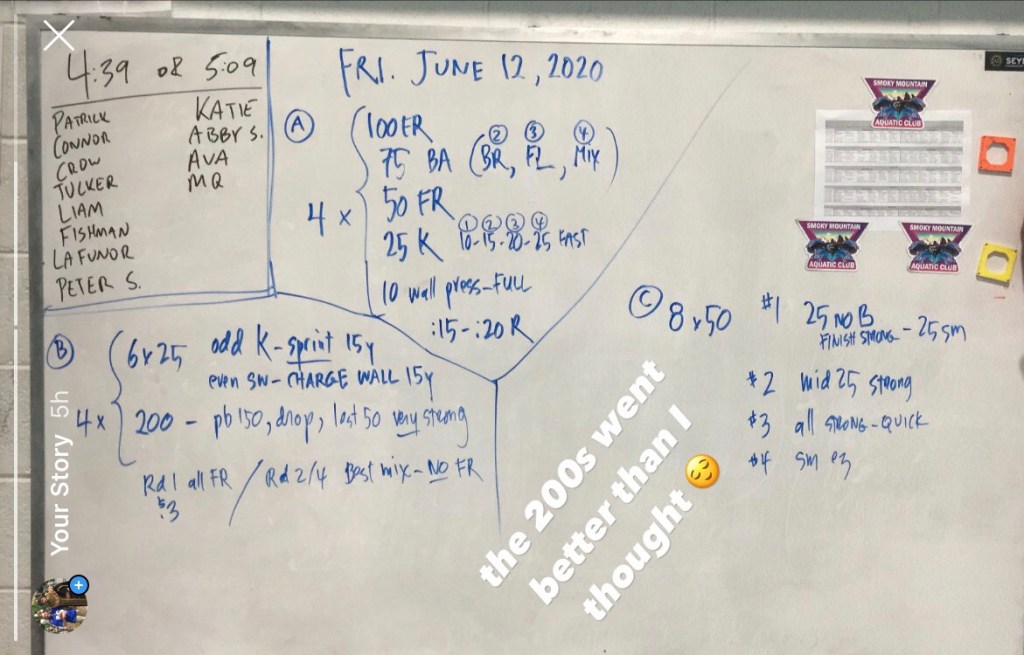 4:39 OR 5:09
PATRICK
CONNOR
CROW
TUCKER
LIAM
FISHMAN
LAFUNOR
PETER S.
KATIE
ABBY S.
AVA
MQ
FRI. JUNE 12, 2020
A
4 x
100 FR
② ③ ④
75 BA (BR, FL, MIX)
50 FR
① ② ③ ④
25 K 10-15-20-25 FAST
10 wall press-FULL
:15-:20 R
B
4x
6x25 odd K-sprint 15y
even SW-CHARGE WALL 15y
200 - pb 150, drop, last 50 very strong
Rd 1 all FR / Rd 2/4 Best mix-NO FR
&3
C 8x50
#1 25 NO B
FINISH STRONG - 25 sm
#2 mid 25 strong
#3 all STRONG-QUICK
#4 sm ez
SMOKY MOUNTAIN
AQUATIC CLUB
SMOKY MOUNTAIN
AQUATIC CLUB
SMOKY MOUNTAIN
AQUATIC CLUB
the 200s went
better than I
thought
Your Story 5h